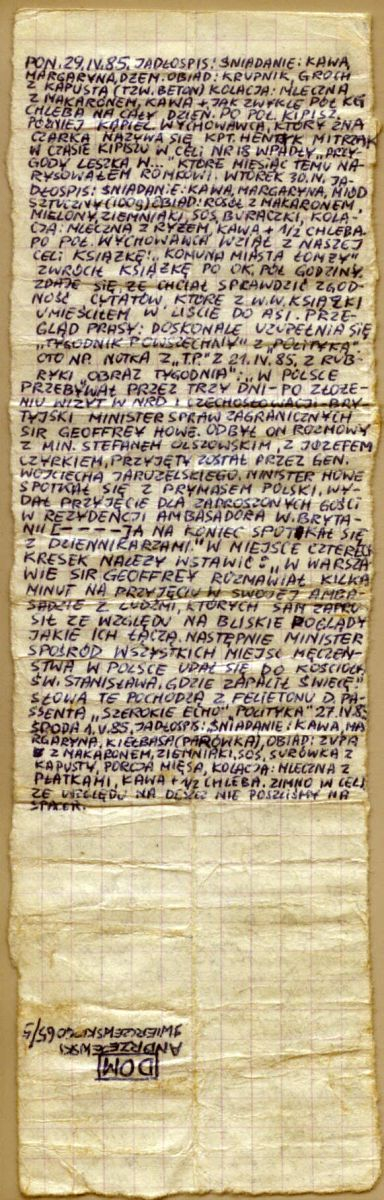 PON. 29.IV.85. JADŁOSPIS: ŚNIADANIE: KAWA,
MARGARYNA, DŻEM. OBIAD: KRUPNIK, GROCH
Z KAPUSTĄ (TZW. BETON) KOLACJA: MLECZNA
Z MAKARONEM, KAWA + JAK ZWYKLE PÓŁ KG
CHLEBA NA CAŁY DZIEŃ. PO POŁ. KIPISZ,
PÓŹNIEJ KĄPIEL. WYCHOWAWCA, KTÓRY ZNA
CZARKA NAZYWA SIĘ KPT. HENRYK MITRZAK
W CZASIE KIPISZU W CELI NR 18 WPADŁY „PRZY-
GODY LESZKA W..." KTÓRE MIESIĄC TEMU NA-
RYSOWAŁEM ROMKOWI. WTOREK 30.IV. JA-
DŁOSPIS: ŚNIADANIE: KAWA, MARGARYNA, MIÓD
SZTUCZNY (100g) OBIAD: ROSÓŁ Z MAKARONEM
MIELONY, ZIEMNIAKI, SOS, BURACZKI, KOLA-
CJA: MLECZNA Z RYŻEM, KAWA + 1/2 CHLEBA.
PO POŁ. WYCHOWAWCA WZIĄŁ Z NASZEJ
CELI KSIĄŻKĘ: „KOMUNA MIASTA ŁOMŻY"
ZWRÓCIŁ KSIĄŻKĘ PO OK. PÓŁ GODZINY.
ZDAJE SIĘ, ŻE CHCIAŁ SPRAWDZIĆ ZGOD-
NOŚĆ CYTATÓW, KTÓRE Z W.W. KSIĄŻKI
UMIEŚCIŁEM W LIŚCIE DO ASI. PRZE-
GLĄD PRASY: DOSKONALE UZUPEŁNIA SIĘ
„TYGODNIK POWSZECHNY" Z „POLITYKĄ"
OTO NP. NOTKA Z „T.P." Z 21.IV.85, Z RUB-
RYKI „OBRAZ TYGODNIA": „W POLSCE
PRZEBYWAŁ PRZEZ TRZY DNI - PO ZŁOŻE-
NIU WIZYT W NRD I CZECHOSŁOWACJI - BRY-
TYJSKI MINISTER SPRAW ZAGRANICZNYCH
SIR GEOFFREY HOWE. ODBYŁ ON ROZMOWY
Z MIN. STEFANEM OLSZOWSKIM, Z JÓZEFEM
CZYRKIEM, PRZYJĘTY ZOSTAŁ PRZEZ GEN.
WOJCIECHA JARUZELSKIEGO. MINISTER HOWE
SPOTKAŁ SIĘ Z PRYMASEM POLSKI, WY-
DAŁ PRZYJĘCIE DLA ZAPROSZONYCH GOŚCI
W REZYDENCJI AMBASADORA W. BRYTA-
NII [----] A NA KONIEC SPOTKAŁ SIĘ
Z DZIENNIKARZAMI." W MIEJSCE CZTERECH
KRESEK NALEŻY WSTAWIĆ: „W WARSZA
WIE SIR GEOFFREY ROZMAWIAŁ KILKA
MINUT NA PRZYJĘCIU W SWOJEJ AMBA-
SADZIE Z LUDŹMI, KTÓRYCH SAM ZAPRO
SIŁ ZE WZGLĘDU NA BLISKIE POGLĄDY
JAKIE ICH ŁĄCZĄ. NASTĘPNIE MINISTER
SPOŚRÓD WSZYSTKICH MIEJSC MĘCZEŃ-
STWA W POLSCE UDAŁ SIĘ DO KOŚCIOŁA
ŚW. STANISŁAWA, GDZIE ZAPALIŁ ŚWIECĘ"
SŁOWA TE POCHODZĄ Z FELIETONU D. PA-
SSENTA „SZEROKIE ECHO" „POLITYKA" 27.IV.85
ŚRODA 1.V.85. JADŁOSPIS: ŚNIADANIE: KAWA, MA
RGARYNA, KIEŁBASA (PARÓWKA), OBIAD: ZUPA
Z MAKARONEM, ZIEMNIAKI, SOS, SURÓWKA Z
KAPUSTY, PORCJA MIĘSA, KOLACJA: MLECZNA Z
PŁATKAMI, KAWA + 1/2 CHLEBA. ZIMNO W CELI
ZE WZGLĘDU NA DESZCZ NIE POSZLIŚMY NA
SPACER.
DOM
ANDRZEJEWSKI
ŚWIERCZEWSKIEGO 65/5